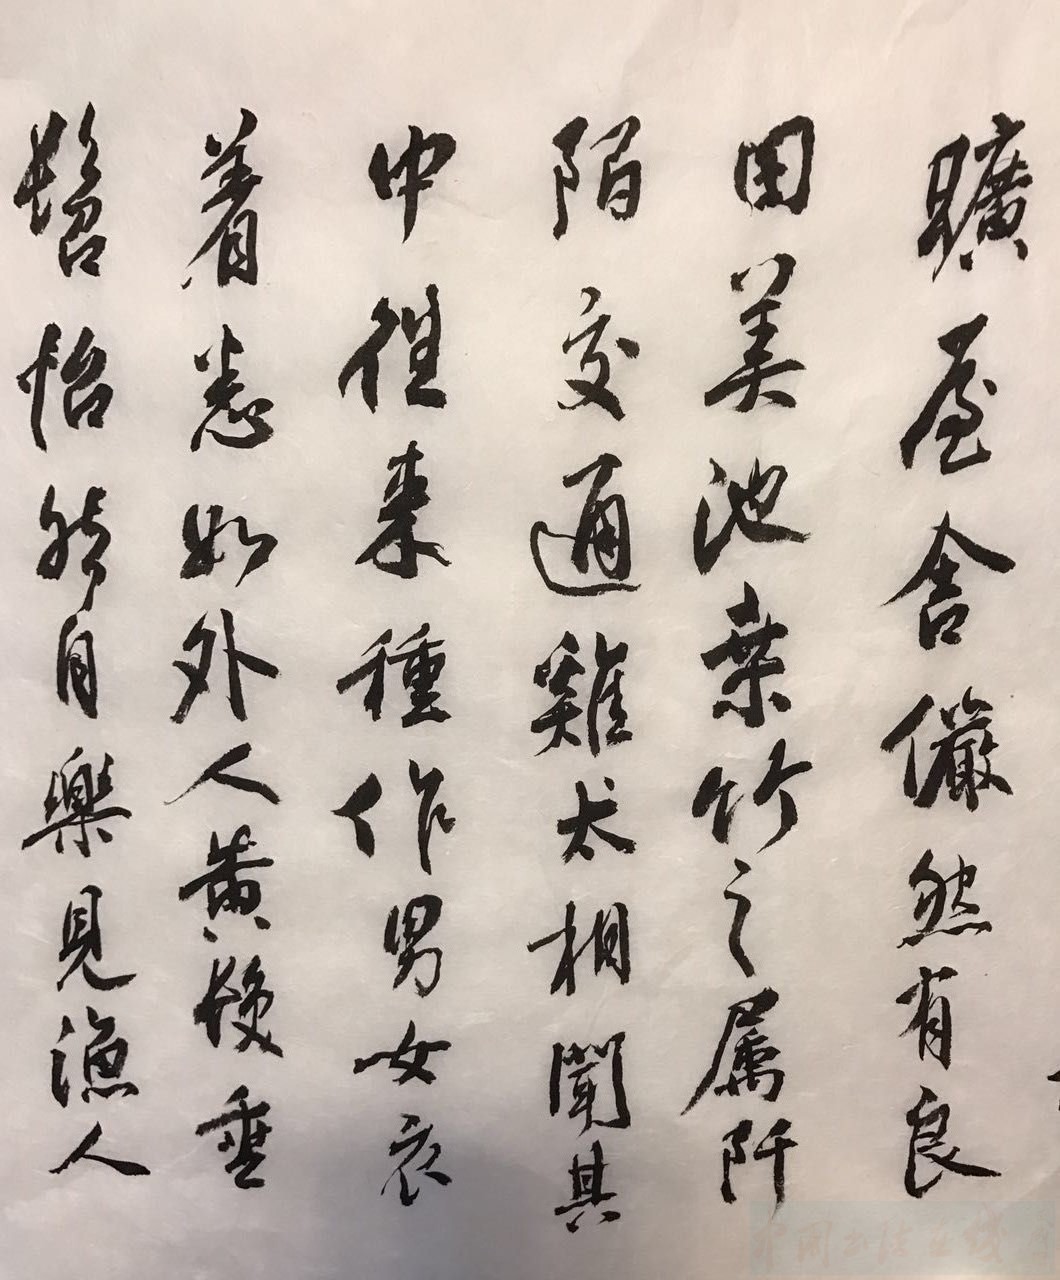 曠屋舍儼然有良
田美池桑竹之属阡
陌交通雞犬相聞其
中往来種作男女衣
着悉如外人黃髮垂
髫怡然自樂見漁人